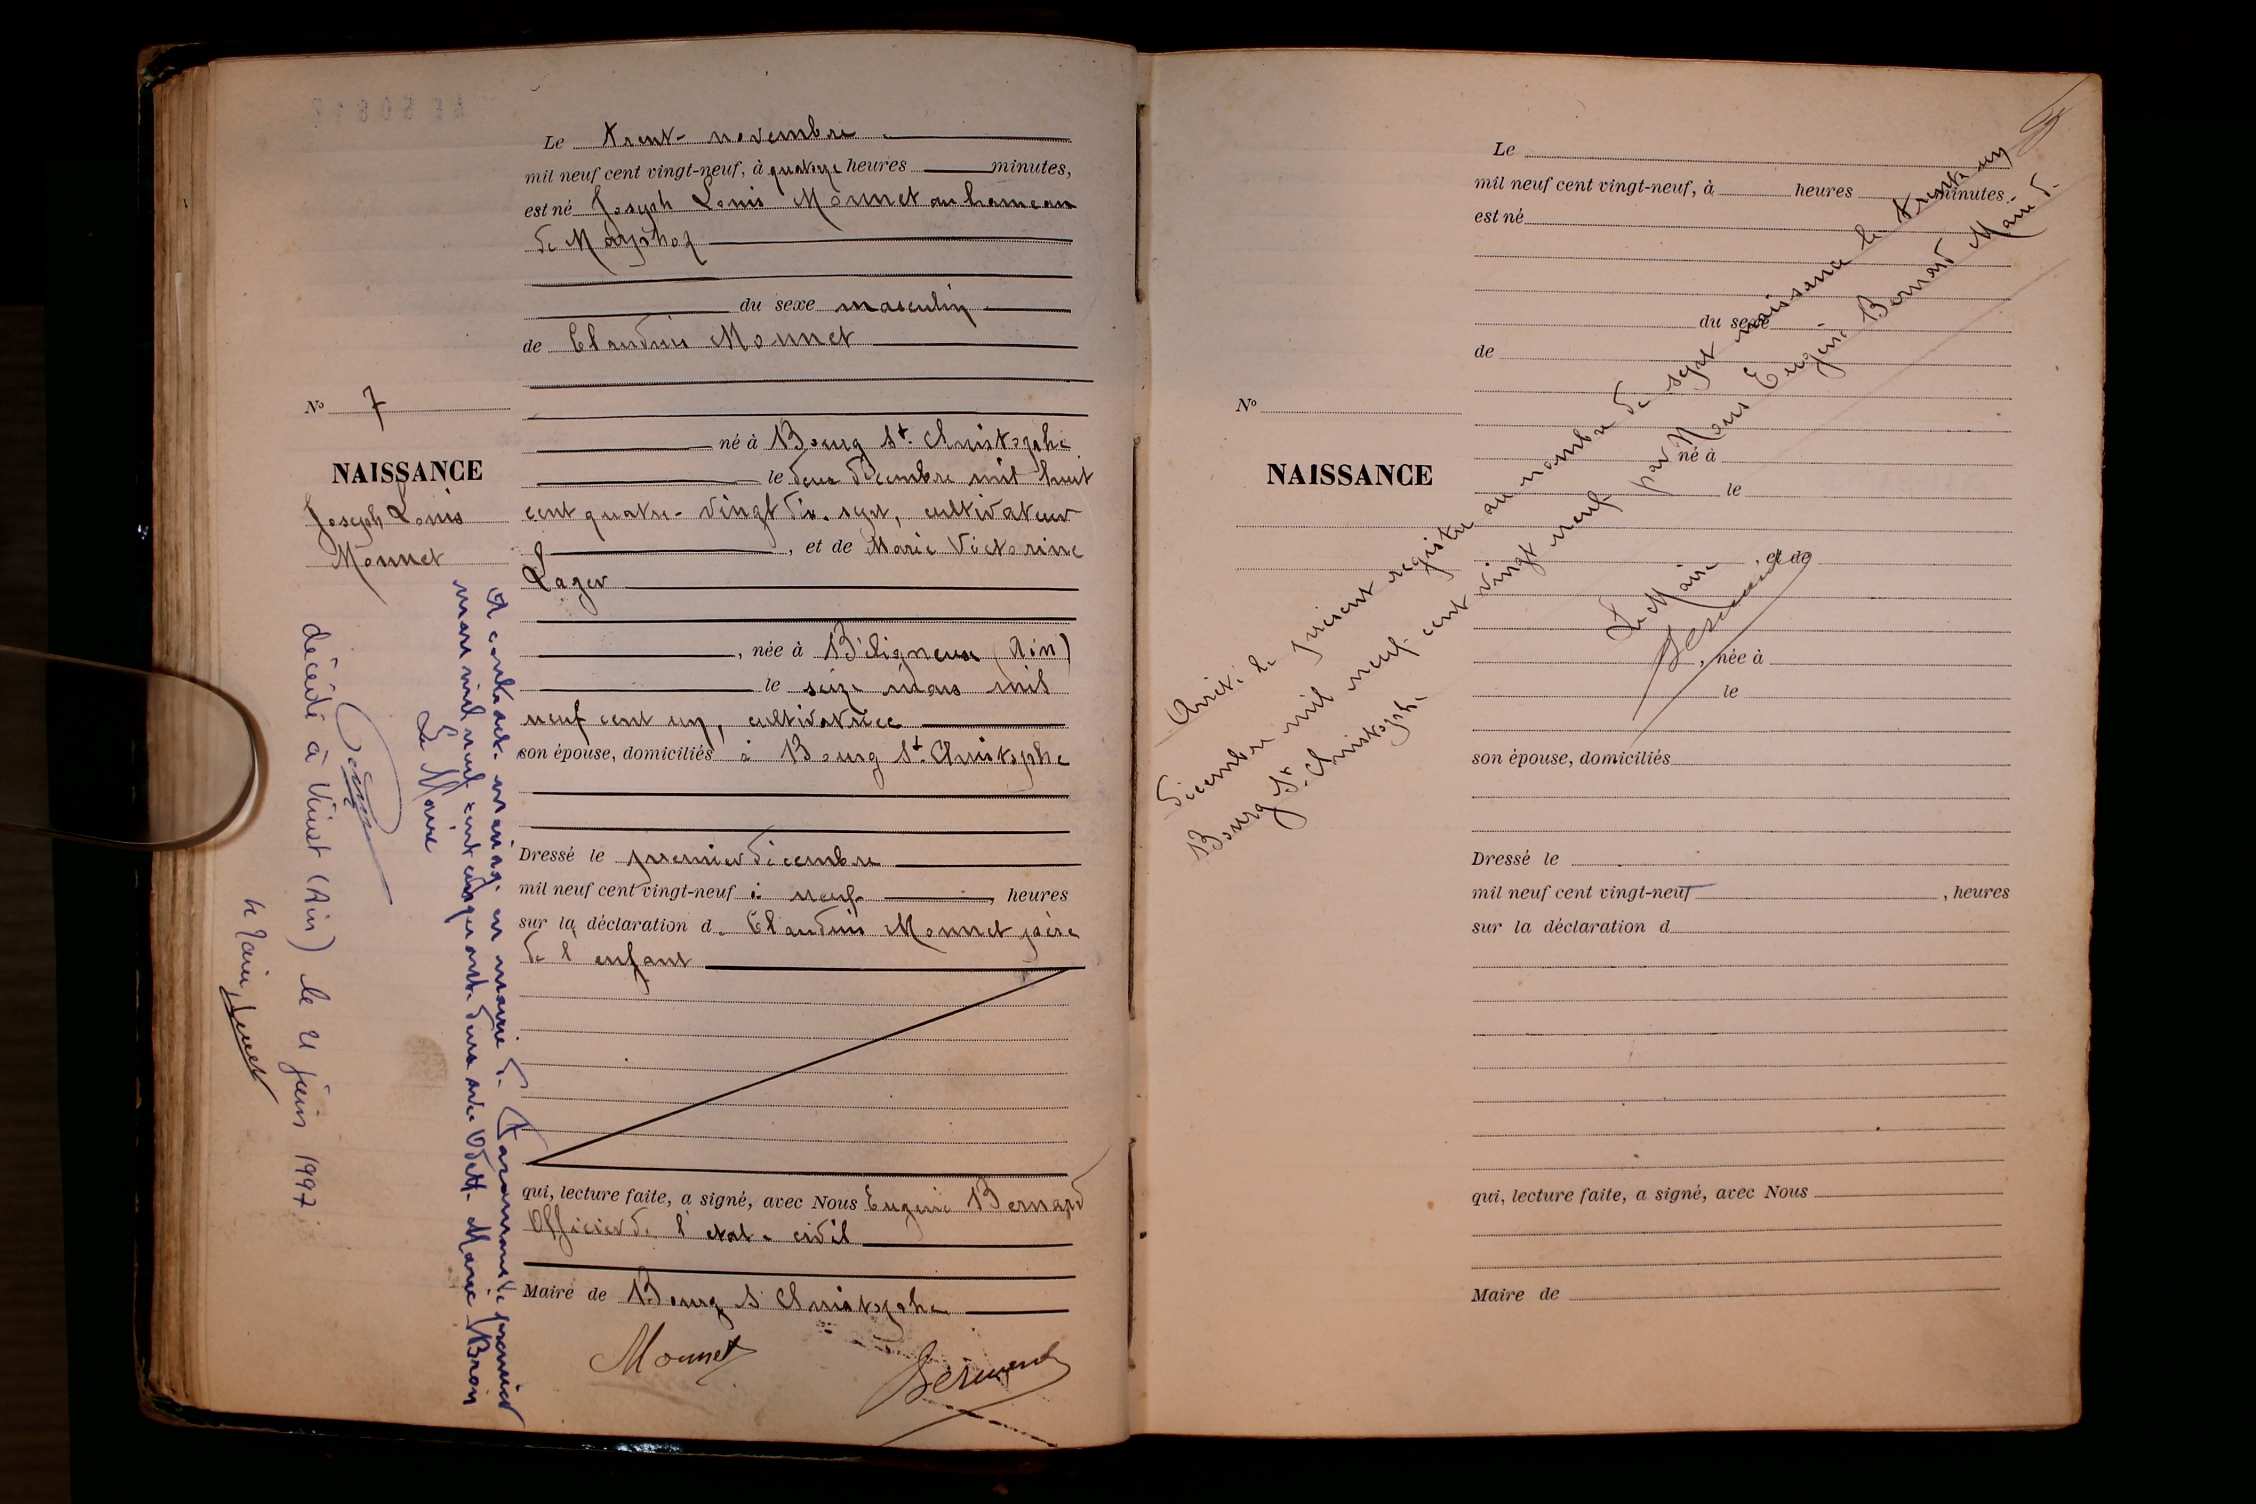 Le trente novembre
mil neuf cent vingt-neuf, à quatorze heures minutes,
est né Joseph Louis Monnet au hameau
de
du sexe masculin
de Claudius Monnet
né à Bourg St. Christophe
le deux décembre mil huit
cent quatre-vingt dix-sept, cultivateur
, et de Marie Victorine
Lager
, née à Béligneux (Ain)
le seize mars mil
neuf cent un, cultivatrice
son épouse, domiciliés à Bourg St. Christophe
Dressé le premier décembre
mil neuf cent vingt-neuf à neuf , heures
sur la déclaration de Claudius Monnet père
de l'enfant
qui, lecture faite, a signé, avec Nous Eugène Bernard
Officier de l'etat-civil
Maire de Bourg St Christophe
Monnet
Bernard
No 7
NAISSANCE
Joseph Louis
Monnet
A contracté mariage en mairie de le premier
mars mil neuf cent cinquante deux avec Odette Marie Bron
Le Maire
décédé à (Ain) le 21 juin 1997
le Maire,
Le
mil neuf cent vingt-neuf, à heures minutes,
est né
du sexe
de
No
NAISSANCE
né à
le
et de
, née à
le
son épouse, domiciliés
Dressé le
mil neuf cent vingt-neuf , heures
sur la déclaration d
qui, lecture faite, a signé, avec Nous
Maire de
Arrêté le présent registre au nombre de sept naissance le trente un
décembre mil neuf cent vingt neuf par Nous Eugène Bernard Maire de
Bourg St. Christophe
Le Maire
Bernard